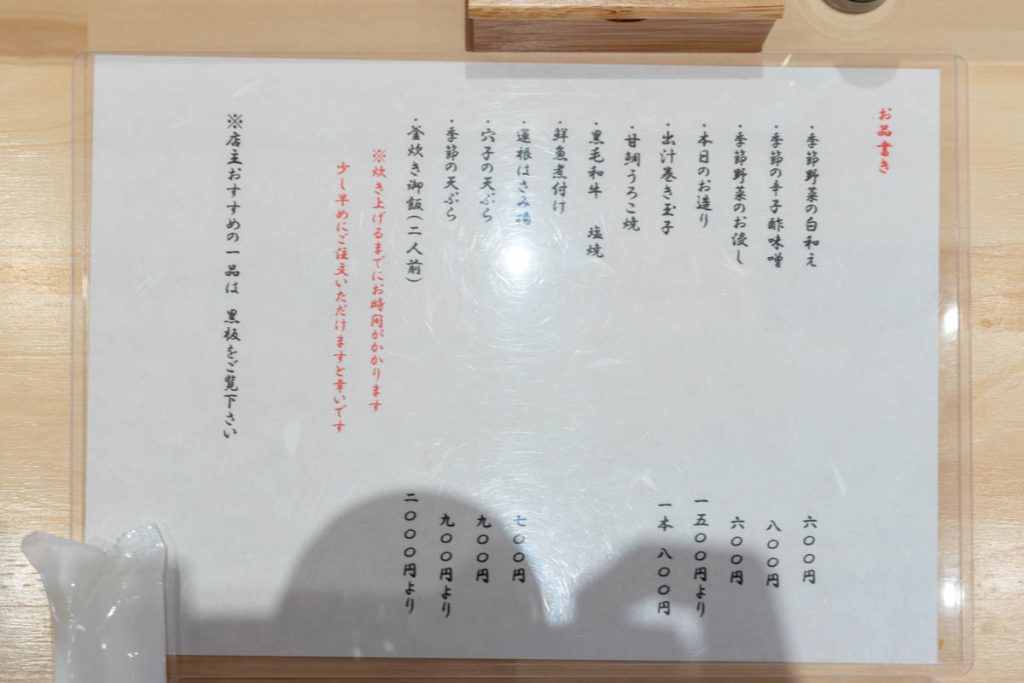 お品書き
・季節野菜の白和え 六〇〇円
・季節の辛子酢味噌 八〇〇円
・季節野菜のお浸し 六〇〇円
・本日のお造り 一五〇〇円より
・出汁巻き玉子 一本 八〇〇円
・甘鯛うろこ焼
・黒毛和牛 塩焼
・鮮魚煮付け
・蓮根はさみ揚 七〇〇円
・穴子の天ぷら 九〇〇円
・季節の天ぷら 九〇〇円より
・釜炊き御飯(二人前) 二〇〇〇円より
※炊き上げるまでにお時間がかかります
少し早めにご注文いただけますと幸いです
※店主おすすめの一品は 黒板をご覧下さい